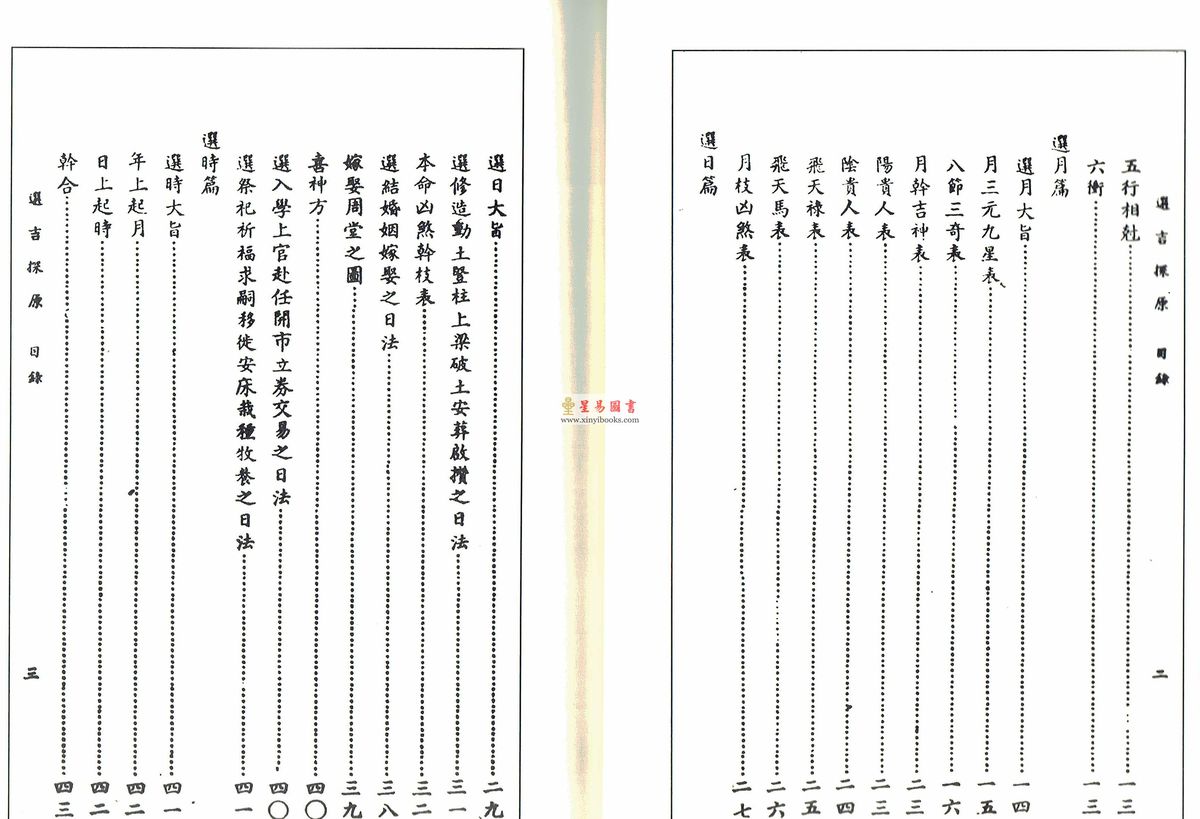 選吉探原 目錄 二
五行相尅 一三
六衝 一三
選月篇
選月大旨 一四
月三元九星表 一五
八節三奇表 一六
月幹吉神表 二三
陽貴人表 二三
陰貴人表 二四
飛天祿表 二五
飛天馬表 二六
月枝凶煞表 二七
選日篇
星易圖書
www.xinyibooks.com
選日大旨 二九
選修造動土豎柱上梁破土安葬啟攢之日法 三一
本命凶煞幹枝表 三二
選結婚姻嫁娶之日法 三八
嫁娶周堂之圖 三九
喜神方 四〇
選入學上官赴任開市立券交易之日法 四〇
選祭祀祈福求嗣移徙安床栽種牧養之日法 四一
選時篇
選時大旨 四一
年上起月 四二
日上起時 四二
幹合 四三
選吉探原 目錄 三